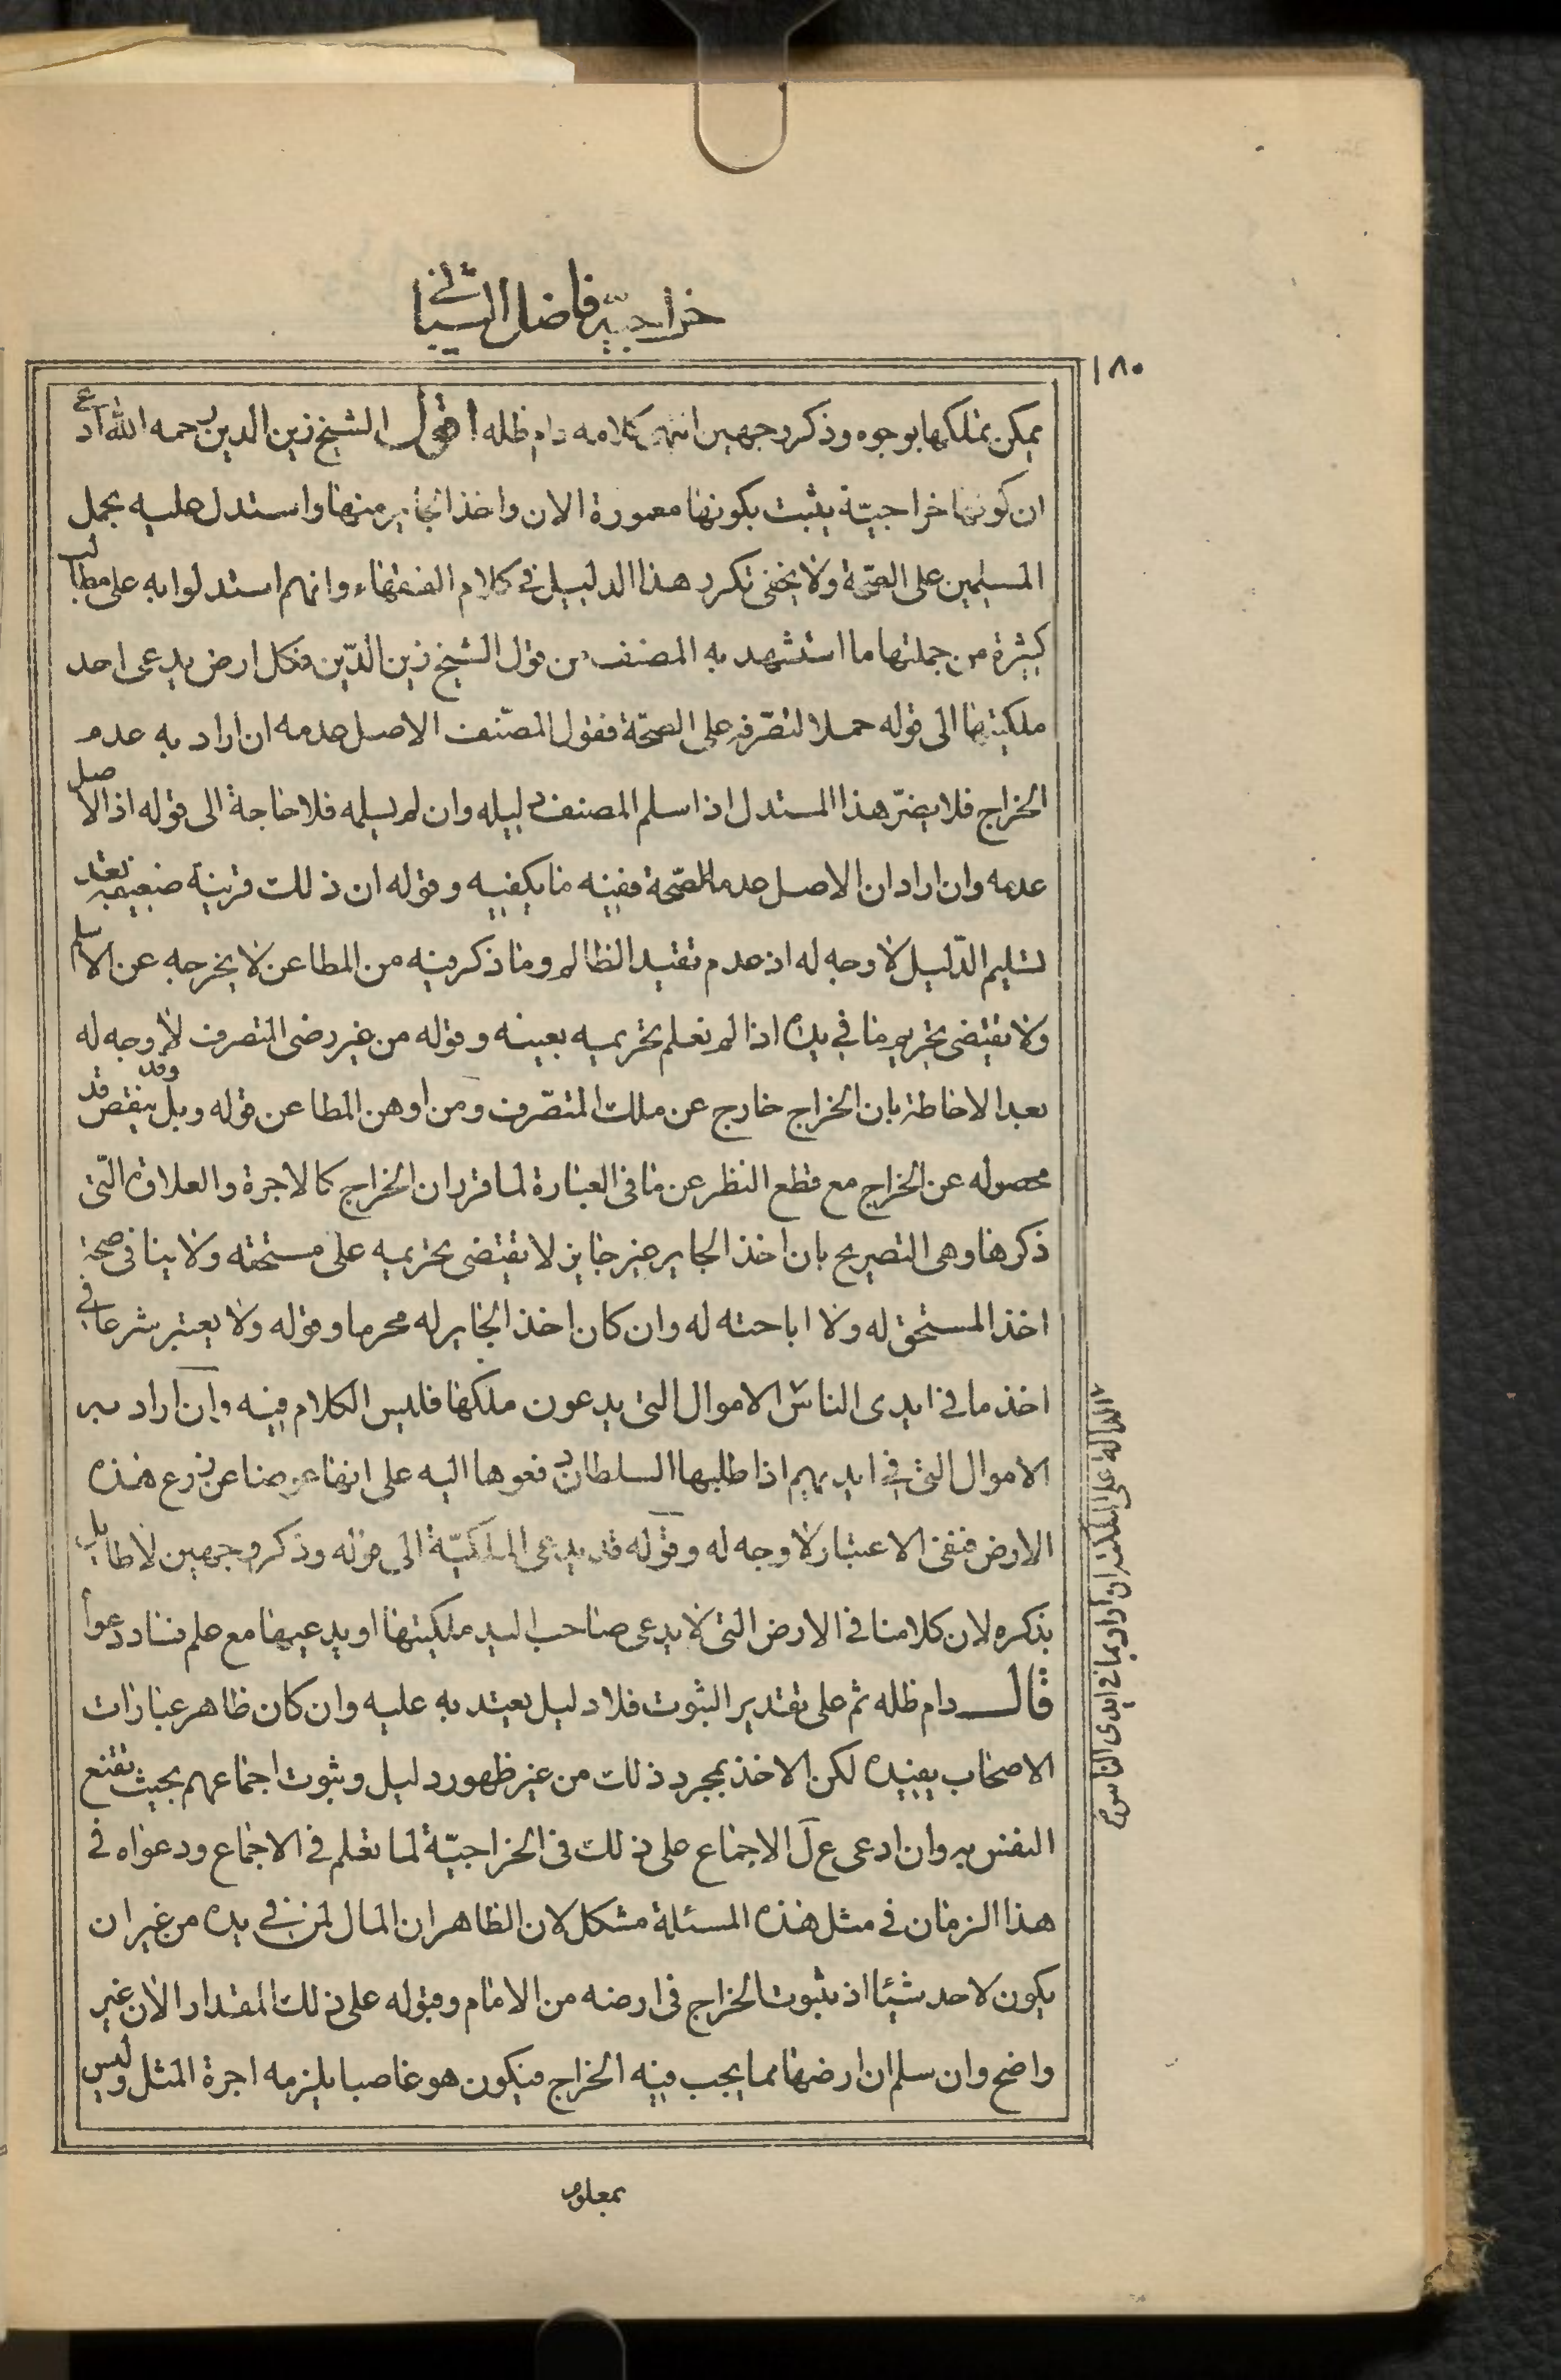 خراجيّة فاضل الشيبانى
١٨٠
يمكن تملكها بوجوه وذكر وجهين انتهى كلامه دام ظله اقول الشيخ زين الدين رحمه الله ادعى
ان كونها خراجيّة يثبت بكونها معمورة الان واخذ الجاير منها واستدل عليه بحمل
المسلمين على الصحّة ولا يخفى تكرر هذا الدليل فى كلام الفقهاء وانهم استدلوا به على مطالب
كثيرة من جملتها ما استشهد به المصنف من قول الشيخ زين الدّين فكل ارض يدعى احد
ملكيتها الى قوله حملا لتصرّفه على الصحّة فقول المصّنف الاصل عدمه ان اراد به عدم
الخراج فلا يضرّ هذا المستدل اذا سلم المصنف دليله وان لم يسلمه فلا حاجة الى قوله اذ الاصل
عدمه وان اراد ان الاصل عدم الصّحة ففيه ما يكفيه وقوله ان ذلك قرينة ضعيفة بعد
تسليم الدّليل لا وجه له اذ عدم تقيد الظالم وما ذكر فيه من المطاعن لا يخرجه عن الاسلام
ولا يقتضى تحريم ما فى يده اذا لم نعلم تحريمه بعينه وقوله من غير رضى المتصرف لا وجه له
بعد الاحاطة بان الخراج خارج عن ملك المتصّرف ومن اوهن المطاعن قوله وبل ينقص وقد قد
محصوله عن الخراج مع قطع النظر عن ما فى العبارة لما قرر ان الخراج كالاجرة والعلاوة الّتى
ذكرها وهى التصريح بان اخذ الجاير غير جايز لا يقتضى تحريمه على مستحقه ولا ينافى صحة
اخذ المستحق له ولا اباحته له وان كان اخذ الجاير له محرما وقوله ولا يعتبر شرعا فى
اخذ ما فى ايدى الناس الاموال التى يدعون ملكها فليس الكلام فيه وان اراد به
الاموال التى فى ايديهم اذا طلبها السلطان دفعوها اليه على انها عوضا عن زرع هذه
الارض فنفى الاعتبار لا وجه له وقوله قد يدعى الملكيّة الى قوله وذكر وجهين لا طايل
بذكره لان كلامنا فى الارض التى لا يدعى صاحب اليد ملكيتها او يدعيها مع علم فساد دعواه
قال دام ظله ثم على تقدير الثبوت فلا دليل يعتد به عليه وان كان ظاهر عبارات
الاصحاب يفيده لكن الاخذ بمجرد ذلك من غير ظهور دليل وثبوت اجماعهم بحيث تقنع
النفس به وان ادعى ع ل الاجماع على ذلك فى الخراجيّة لما تعلم فى الاجماع ودعواه فى
هذا الزمان فى مثل هذه المسئلة مشكل لان الظاهر ان المال لمن فى يده من غير ان
يكون لاحد شيئا اذ ثبوت الخراج فى ارضه من الامام وقبوله على ذلك المقدار الان غير
واضح وان سلم ان ارضها مما يجب فيه الخراج فيكون هو غاصبا يلزمه اجرة المثل وليس
الدالة على الملكية ان اراد بما فى ايدى الناس
بمعلوم